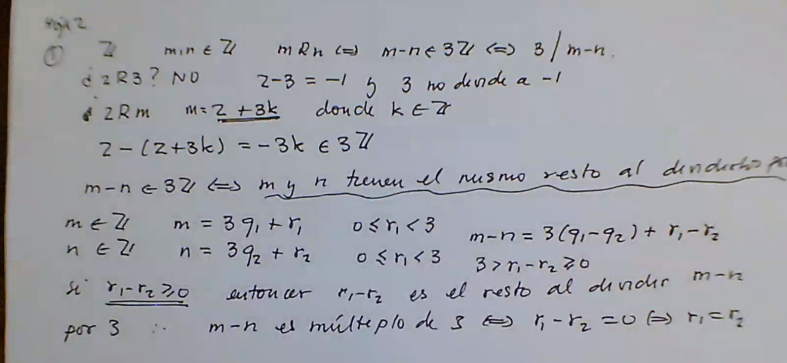 Hoja 2
① ℤ m,n ∈ ℤ m R n ⇔ m-n ∈ 3ℤ ⇔ 3 / m-n.
¿ 2R3? NO 2-3 = -1 y 3 no divide a -1
2Rm m = 2 + 3k donde k ∈ ℤ
2 - (2+3k) = -3k ∈ 3ℤ
m-n ∈ 3ℤ ⇔ m y n tienen el mismo resto al dividirlos
m ∈ ℤ m = 3q₁ + r₁ 0 ≤ r₁ < 3
n ∈ ℤ n = 3q₂ + r₂ 0 ≤ r₁ < 3
m-n = 3(q₁-q₂) + r₁-r₂
3 > r₁-r₂ ≥ 0
si r₁-r₂ ≥ 0 entonces r₁-r₂ es el resto al dividir m-n
por 3 ∴ m-n es múltiplo de 3 ⇔ r₁-r₂ = 0 ⇔ r₁ = r₂